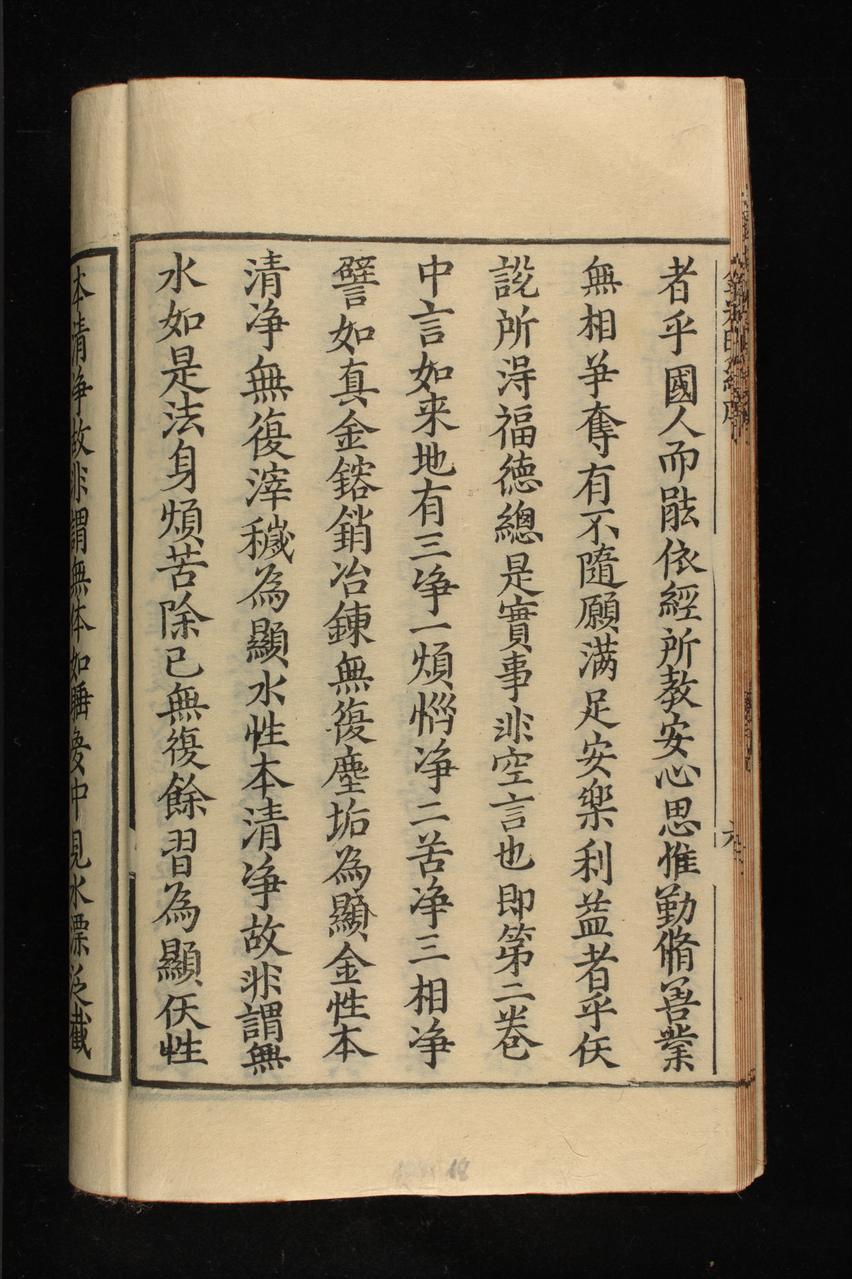 者乎國人而能依經所教安心思惟勤脩善業
無相爭奪有不隨願满足安樂利益者乎仸
說所淂福德總是實事非空言也即第二卷
中言如来地有三净一煩惱净二苦净三相净
譬如真金鎔銷冶鍊無復塵垢為顯金性本
清净無復滓穢為顯水性本清净故非謂無
水如是法身煩苦除已無復餘習為顯仸性
本清净故非謂無体如睡夢中見水漂泛截